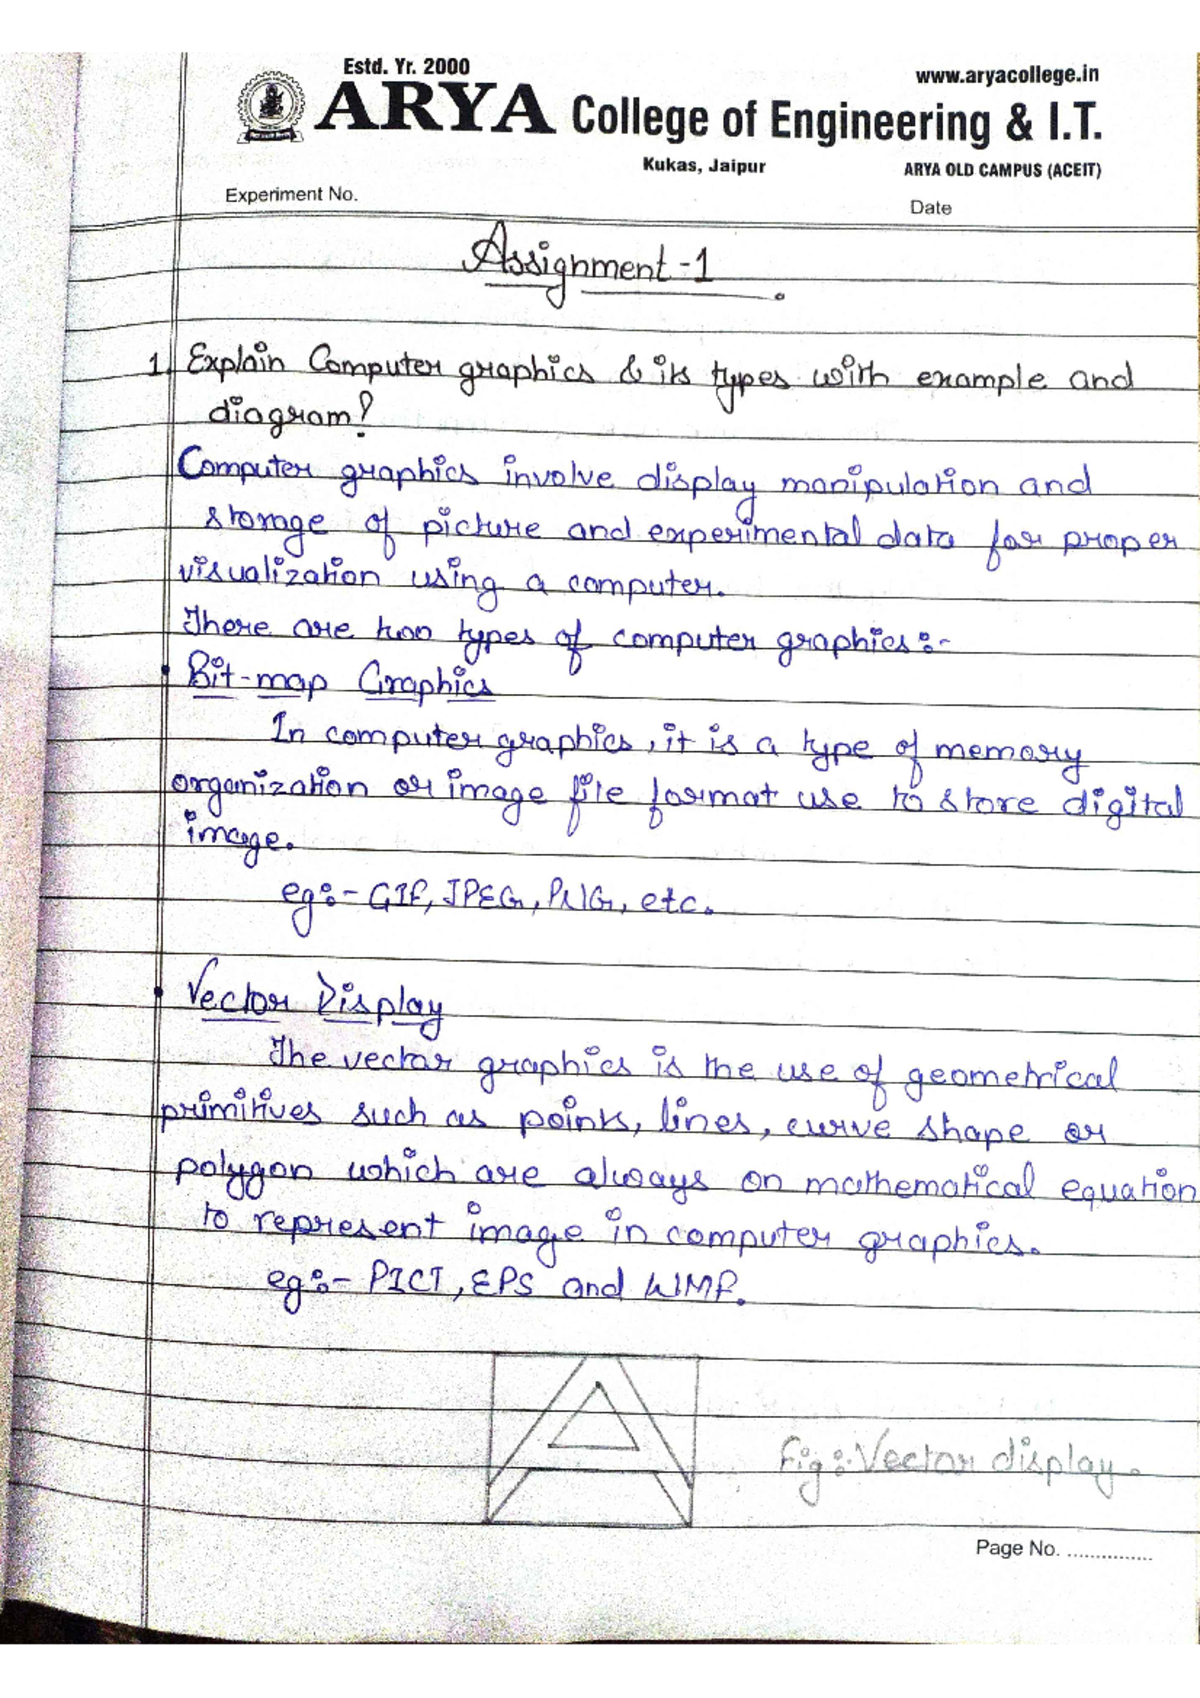 Estd. Yr. 2000
www.aryacollege.in
ARYA College of Engineering & I.T.
Kukas, Jaipur
ARYA OLD CAMPUS (ACEIT)
Experiment No.
Date
Assignment-1
1. Explain Computer graphics & its types with example and
diagram?
Computer graphics involve display manipulation and
storage of picture and experimental data for proper
visualization using a computer.
There are two types of computer graphics:-
• Bit-map Graphics
In computer graphics, it is a type of memory
organization or image file format use to store digital
image.
eg:- GIF, JPEG, PNG, etc.
• Vector Display
The vector graphics is the use of geometrical
primitives such as points, lines, curve shape or
polygon which are always on mathematical equation
to represent image in computer graphics.
eg:- PICT, EPS and WMF.
Fig:- Vector display.
Page No. ...............